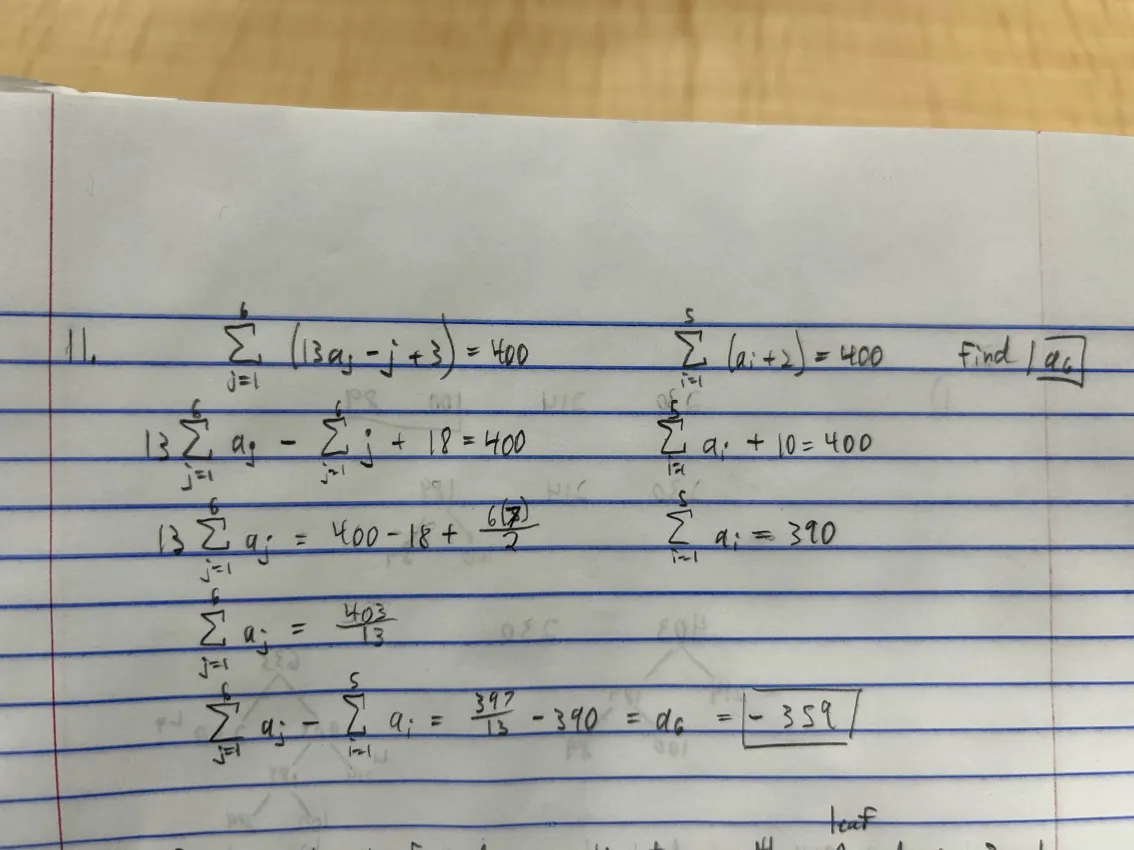 11. \sum_{j=1}^{6} (13a_j - j + 3) = 400 \sum_{i=1}^{5} (a_i + 2) = 400 Find a_6
13 \sum_{j=1}^{6} a_j - \sum_{j=1}^{6} j + 18 = 400 \sum_{i=1}^{5} a_i + 10 = 400
13 \sum_{j=1}^{6} a_j = 400 - 18 + \frac{6(7)}{2} \sum_{i=1}^{5} a_i = 390
\sum_{j=1}^{6} a_j = \frac{403}{13}
\sum_{j=1}^{6} a_j - \sum_{i=1}^{5} a_i = \frac{397}{13} - 390 = a_6 = -359
leaf